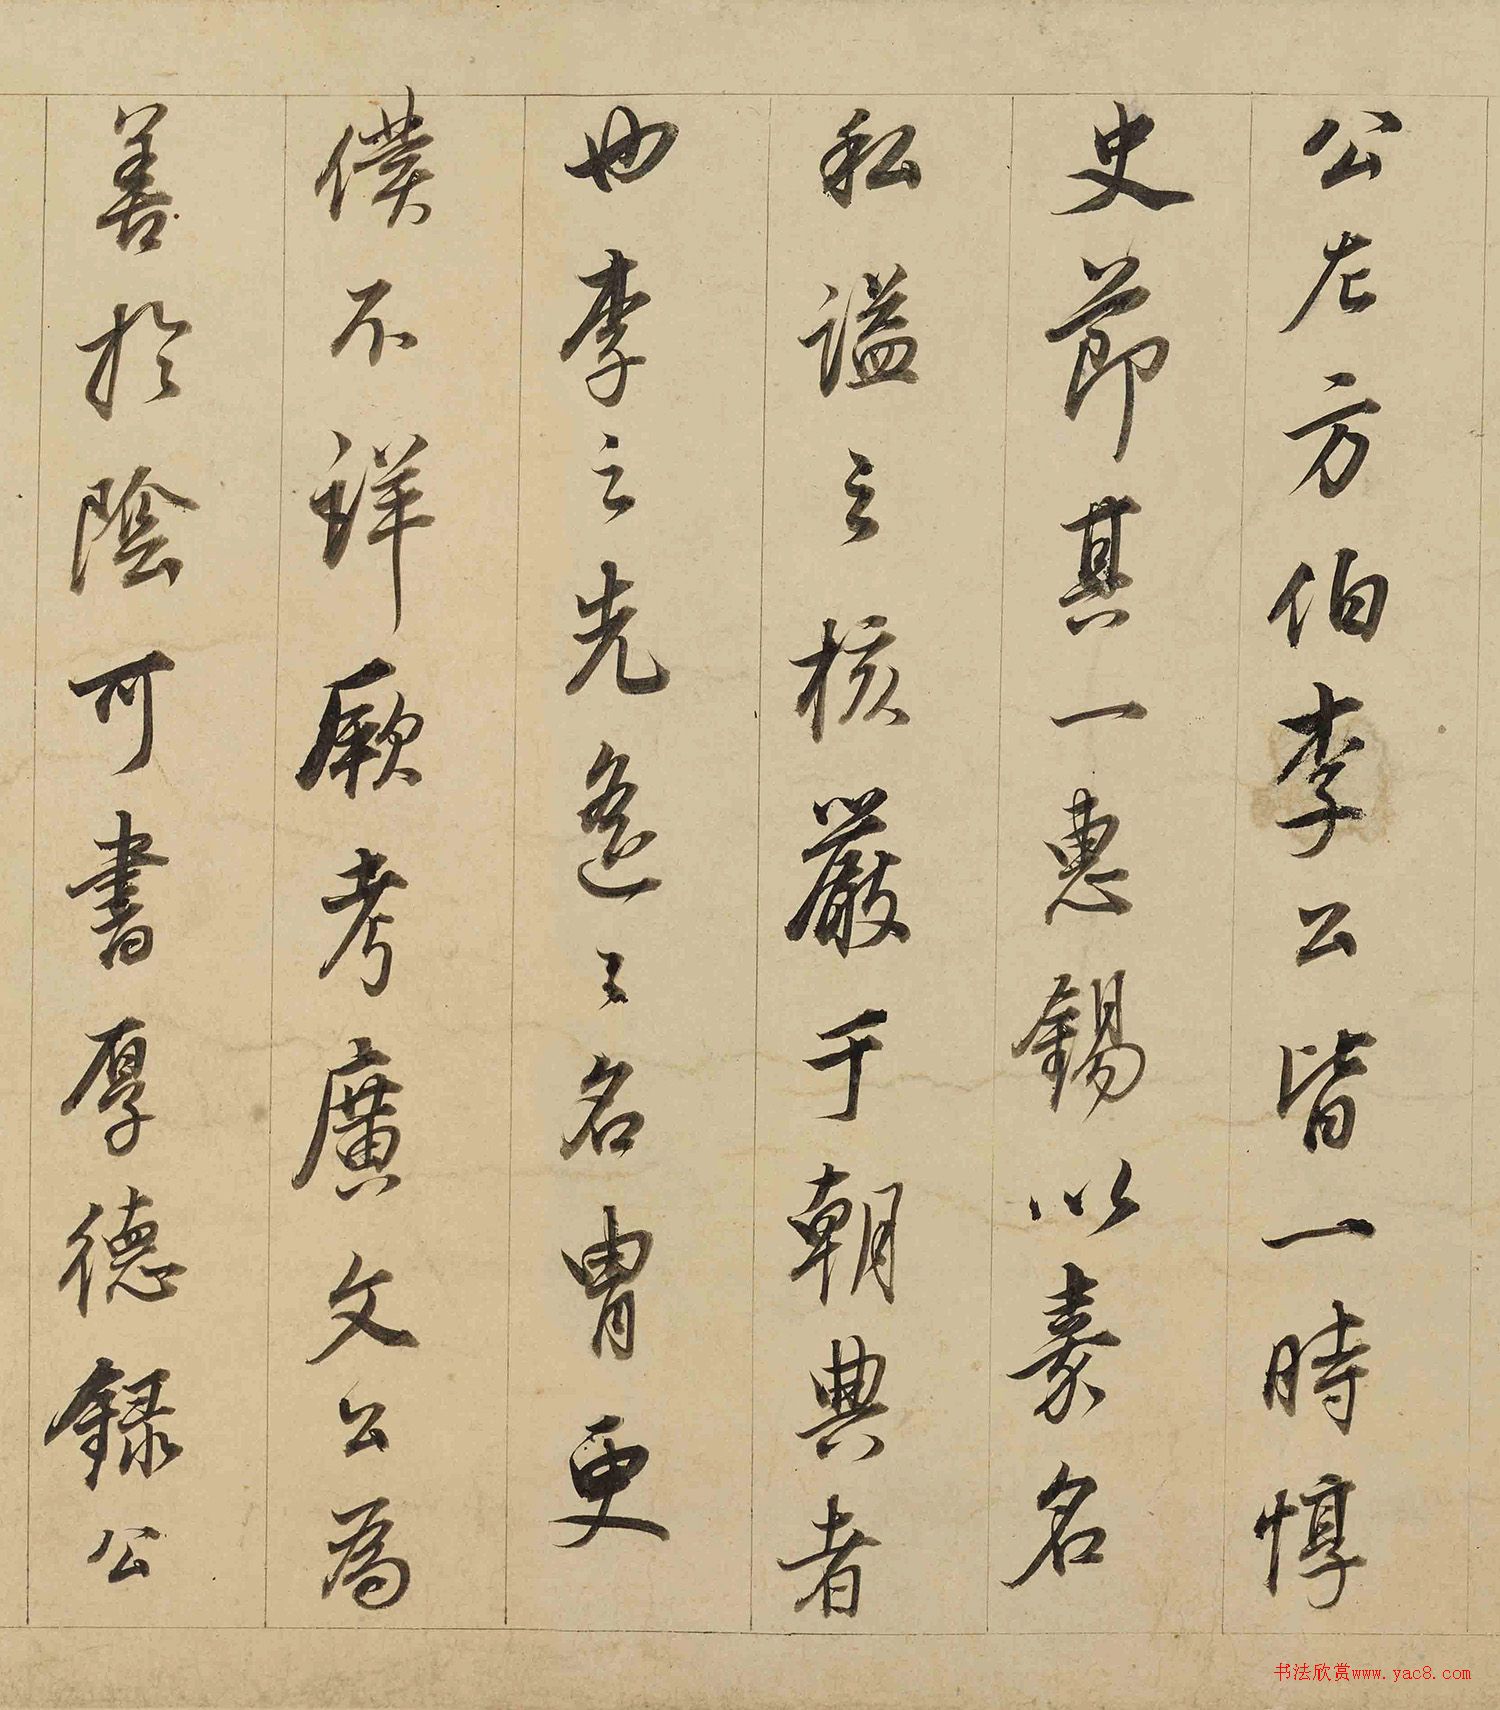 公左方伯李公皆一時惇
史節其一惠錫以素名
私謚之核嚴于朝典者
也李之先遙々名胄更
僕不詳厥考廣文公為
善於陰可書厚德錄公
书法欣赏www.yac8.com